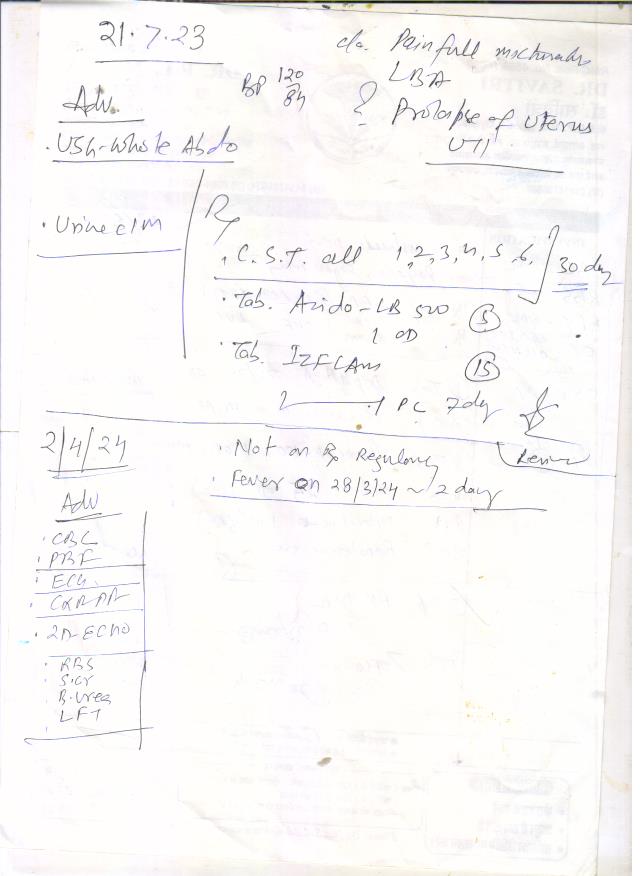 21.7.23
c/o. Painfull micturation
LBA
BP 120/84
? Prolapse of Uterus
UTI
Adv.
. USG-Whole Abdo
. Urine c/m
Rx
. C.S.T. all 1,2,3,4,5,6, 30 day
. Tab. Azido-LB 500 (5)
1 OD
. Tab. (15)
1 PC 7 day
Review
2/4/24
. Not on Rx Regularly
. Fever on 28/3/24 ~ 2 day
Adv
. CBC
. PBF
. ECG.
. CXR PA
. 2D-ECHO
. RBS
. S.cr
. B.urea
. LFT